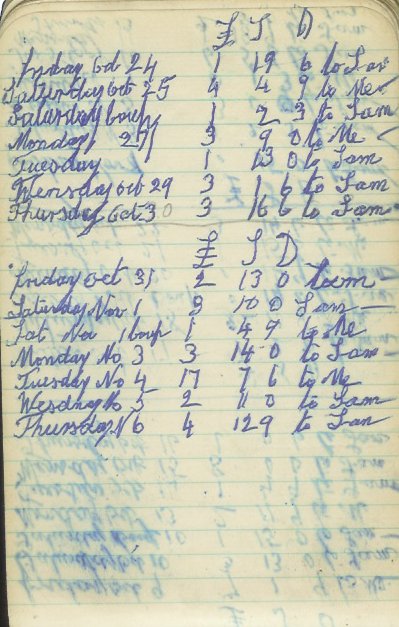 £ S D
Friday Oct 24 1 19 6 to Sam
Saturday Oct 25 4 4 9 to Me
Saturday 1 2 3 to Sam
Monday 27 3 9 0 to Me
Tuesday 1 13 0 to Sam
Wensday Oct 29 3 1 6 to Sam
Thursday Oct 30 3 16 6 to Sam
£ S D
Friday Oct 31 2 13 0
Saturday Nov 1 9 10 0 Sam
Sat Nov 1 1 4 9 to Me
Monday No 3 3 14 0 to Sam
Tuesday No 4 17 7 6 to Me
No 5 2 11 0 to Sam
Thursday N 6 4 12 9 to Sam